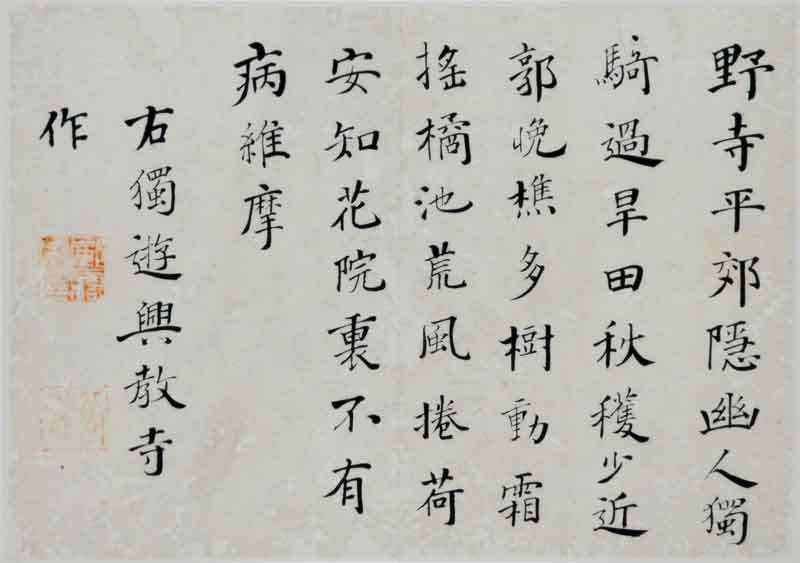 野寺平郊隱幽人獨
騎過旱田秋穫少近
郭晚樵多樹動霜
搖橘池荒風捲荷
安知花院裏不有
病維摩
右獨遊興教寺
作